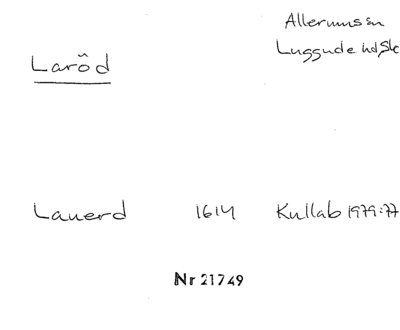 Allerums sn
Luggude hd, Sk
Laröd
Lauerd 1614 Kullab 1979:77
Nr 21749